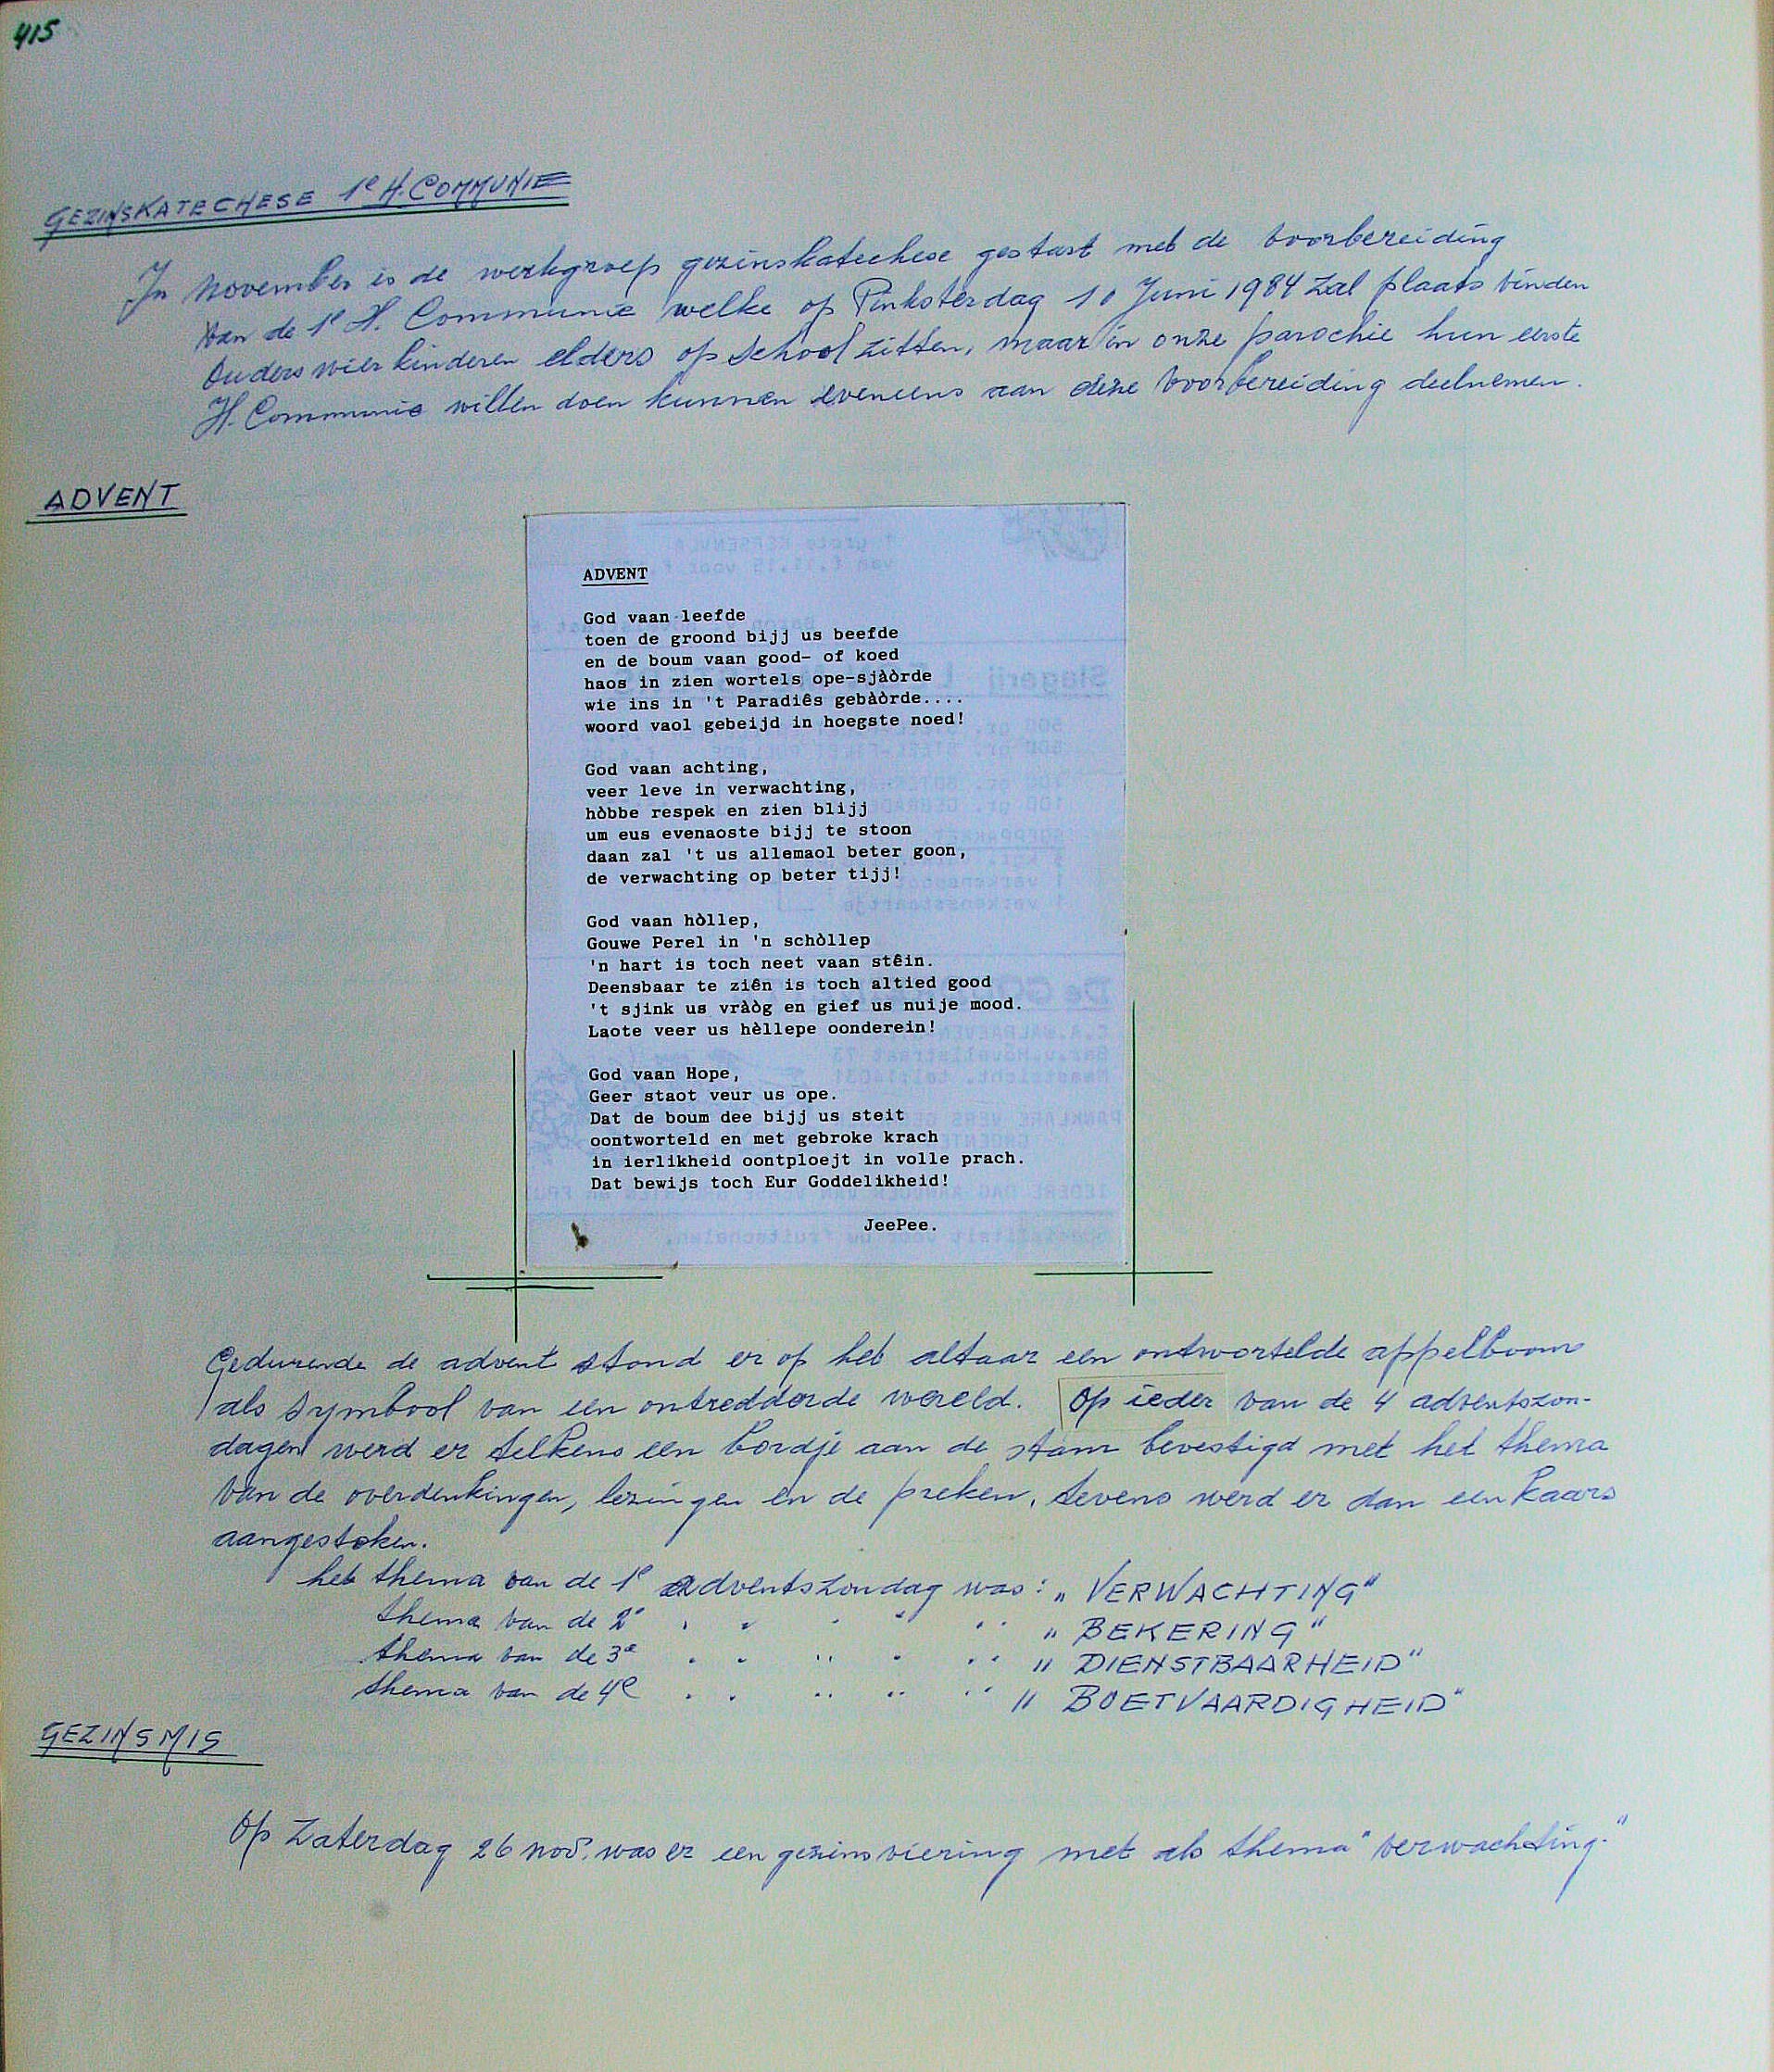 415
GEZINSKATECHESE 1e H. COMMUNIE
In November is de werkgroep gezinskatechese gestart met de voorbereiding
van de 1e H. Communie welke op Pinksterdag 10 Juni 1984 zal plaats vinden
Ouders wier kinderen elders op school zitten, maar in onze parochie hun eerste
H. Communie willen doen kunnen eveneens aan deze voorbereiding deelnemen.
ADVENT
ADVENT
God vaan leefde
toen de groond bijj us beefde
en de boum vaan good- of koed
haos in zien wortels ope-sjàòrde
wie ins in 't Paradiês gebàòrde....
woord vaol gebeijd in hoegste noed!
God vaan achting,
veer leve in verwachting,
hòbbe respek en zien blijj
um eus evenaoste bijj te stoon
daan zal 't us allemaol beter goon,
de verwachting op beter tijj!
God vaan hòllep,
Gouwe Perel in 'n schòllep
'n hart is toch neet vaan stêin.
Deensbaar te ziên is toch altied good
't sjink us vràòg en gief us nuije mood.
Laote veer us hèllepe oonderein!
God vaan Hope,
Geer staot veur us ope.
Dat de boum dee bijj us steit
oontworteld en met gebroke krach
in ierlikheid oontploejt in volle prach.
Dat bewijs toch Eur Goddelikheid!
JeePee.
Gedurende de advent stond er op het altaar een ontwortelde appelboom
als symbool van een ontredderde wereld. Op ieder van de 4 adventszon-
dagen werd er telkens een bordje aan de stam bevestigd met het thema
van de overdenkingen, lezingen en de preken, tevens werd er dan een kaars
aangestoken.
het thema van de 1e adventszondag was: „VERWACHTING"
thema van de 2e " " " " " „BEKERING"
thema van de 3e " " " " " „DIENSTBAARHEID"
thema van de 4e " " " " " „BOETVAARDIGHEID"
GEZINSMIS
Op Zaterdag 26 nov. was er een gezinsviering met als thema "verwachting."